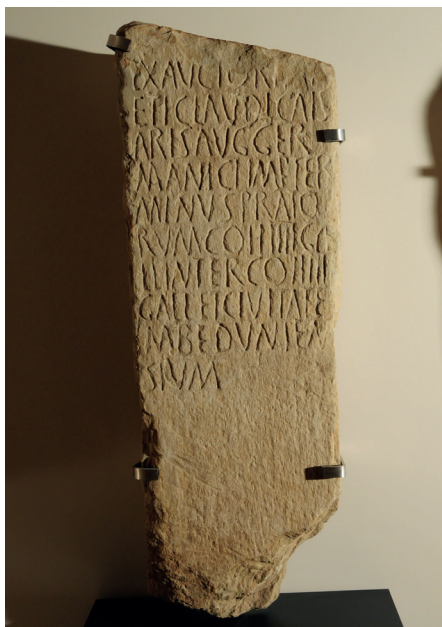 EX AVCTORITAT
E TI CLAVDI CAES
ARIS AVG GER
MANICI IMP TER
MINVS PRATO
RVM COH IIII GA
LL INTER COH IIII
GALL ET CIVITATE
M BEDVNIEN
SIVM